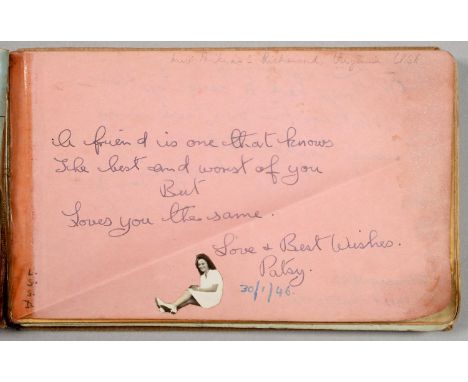 Richmond, Virginia USA
A friend is one that knows
The best and worst of you
But
Loves you the same.
Love & Best Wishes.
Patsy.
30/1/46.